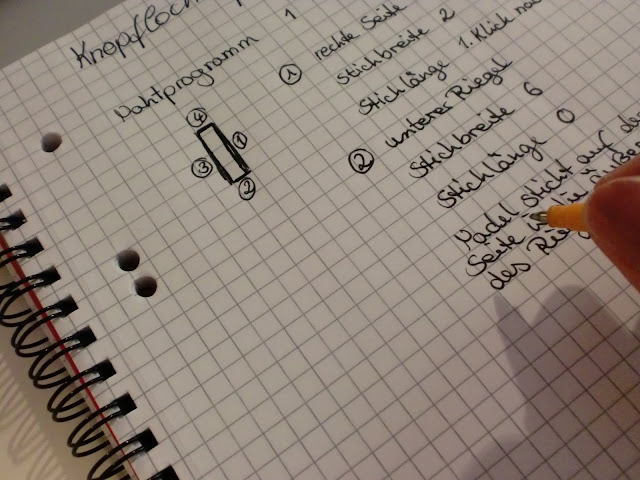 Knopfloch
Nahtprogramm 1
① rechte Seite
Stichbreite 2
Stichlänge 1. Klick
② unterer Riegel
Stichbreite 6
Stichlänge 0
Nadel sticht auf
Seite
des
④
①
③
②